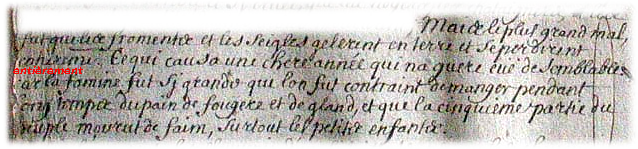 Mais le plus grand mal,
fut que les fromentz et les seigles gelerent en terre et se perdirent
Ce qui causa une chere année qui na guere eüe de semblables
ar la famine fut sj grande que lon fut contraint de manger pendant
ong temps du pain de fougere et de gland, et que la cinquiéme partie du
euple mourut de faim, surtout les petits enfants.